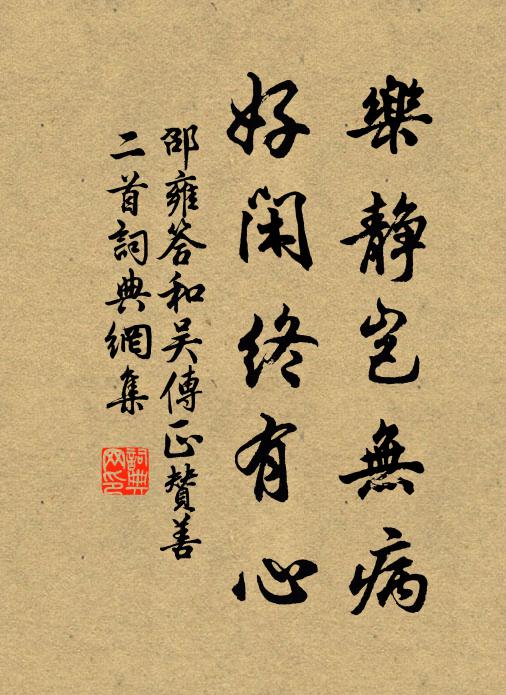 樂静豈無病
好閑終有心
邵雍答和吴傳正贊善
二首詞典網集
詞典
网印